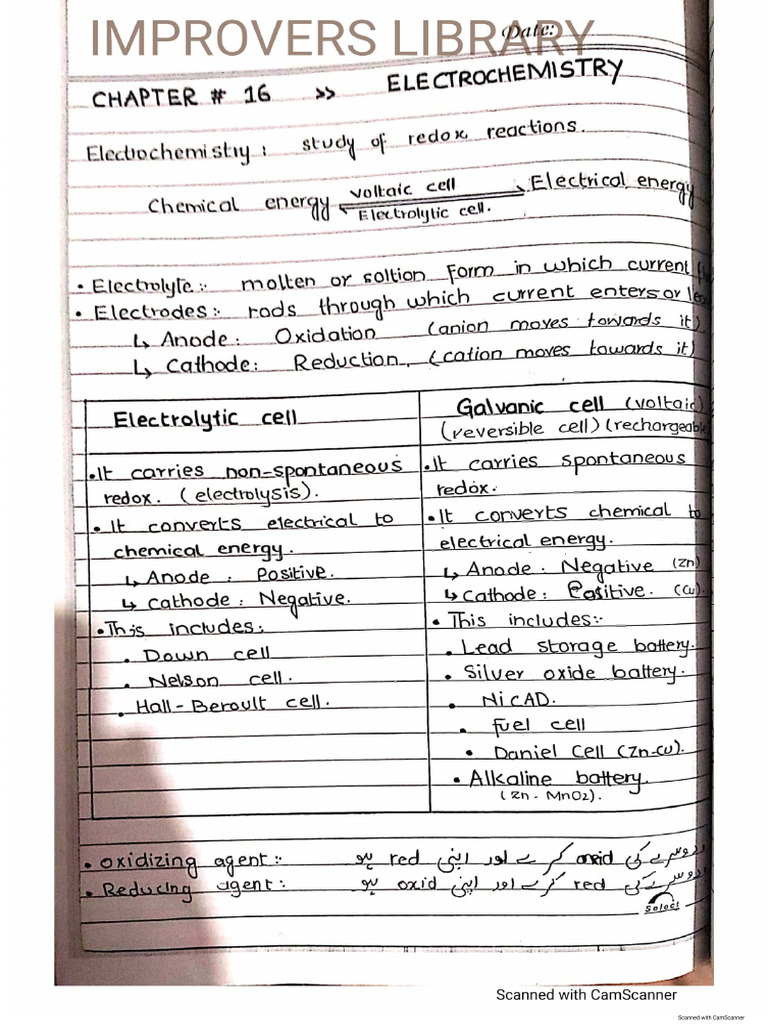 IMPROVERS LIBRARY
Date:
CHAPTER # 16 >> ELECTROCHEMISTRY
Electrochemistry: study of redox reactions.
Chemical energy voltaic cell Electrical energy
Electrolytic cell.
• Electrolyte:- molten or soltion form in which current
• Electrodes:- rods through which current enters or
↳ Anode: Oxidation (anion moves towards it)
↳ Cathode: Reduction. (cation moves towards it)
Electrolytic cell
• It carries non-spontaneous
redox. (electrolysis).
• It converts electrical to
chemical energy.
↳ Anode: Positive.
↳ cathode: Negative.
• This includes:
• Down cell
• Nelson cell.
• Hall-Beroult cell.
Galvanic cell (voltaic)
(reversible cell) (rechargeable
• It carries spontaneous
redox.
• It converts chemical to
electrical energy.
↳ Anode: Negative (Zn)
↳ Cathode: Positive. (Cu).
• This includes:-
• Lead storage battery.
• Silver oxide battery.
• NiCAD.
• fuel cell
• Daniel Cell (Zn-Cu).
• Alkaline battery.
(Zn - MnO2).
• Oxidizing agent:- دوسرے کی oxid کرے اور اپنی red ہو
• Reducing agent: دوسرے کی red کرے اور اپنی oxid ہو
Scanned with CamScanner
Scanned with CamScanner